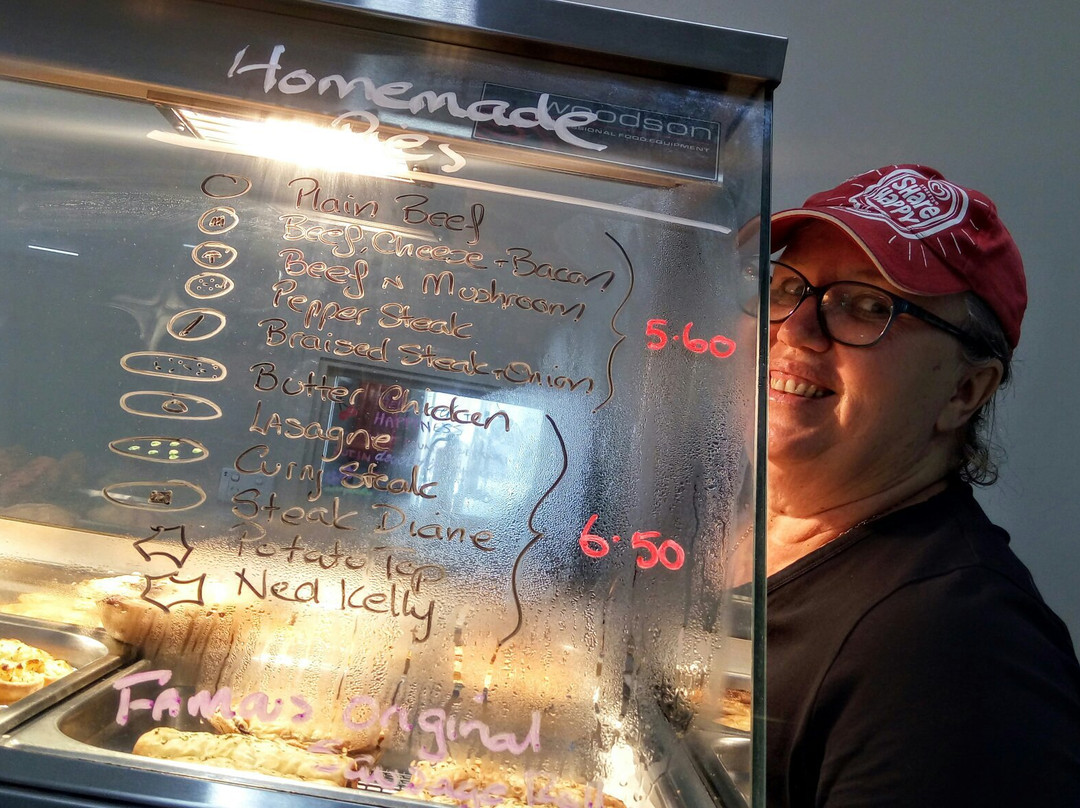 Homemade
Pies
woodson
SIONAL FOOD EQUIPMENT
Plain Beef
Beef, Cheese + Bacon
Beef n Mushroom
Pepper Steak
Braised Steak + Onion
5.60
Butter Chicken
Lasagne
Curry Steak
Steak Diane
Potato Top
Ned Kelly
6.50
Famous Original
Sausage Roll
Share
Happy